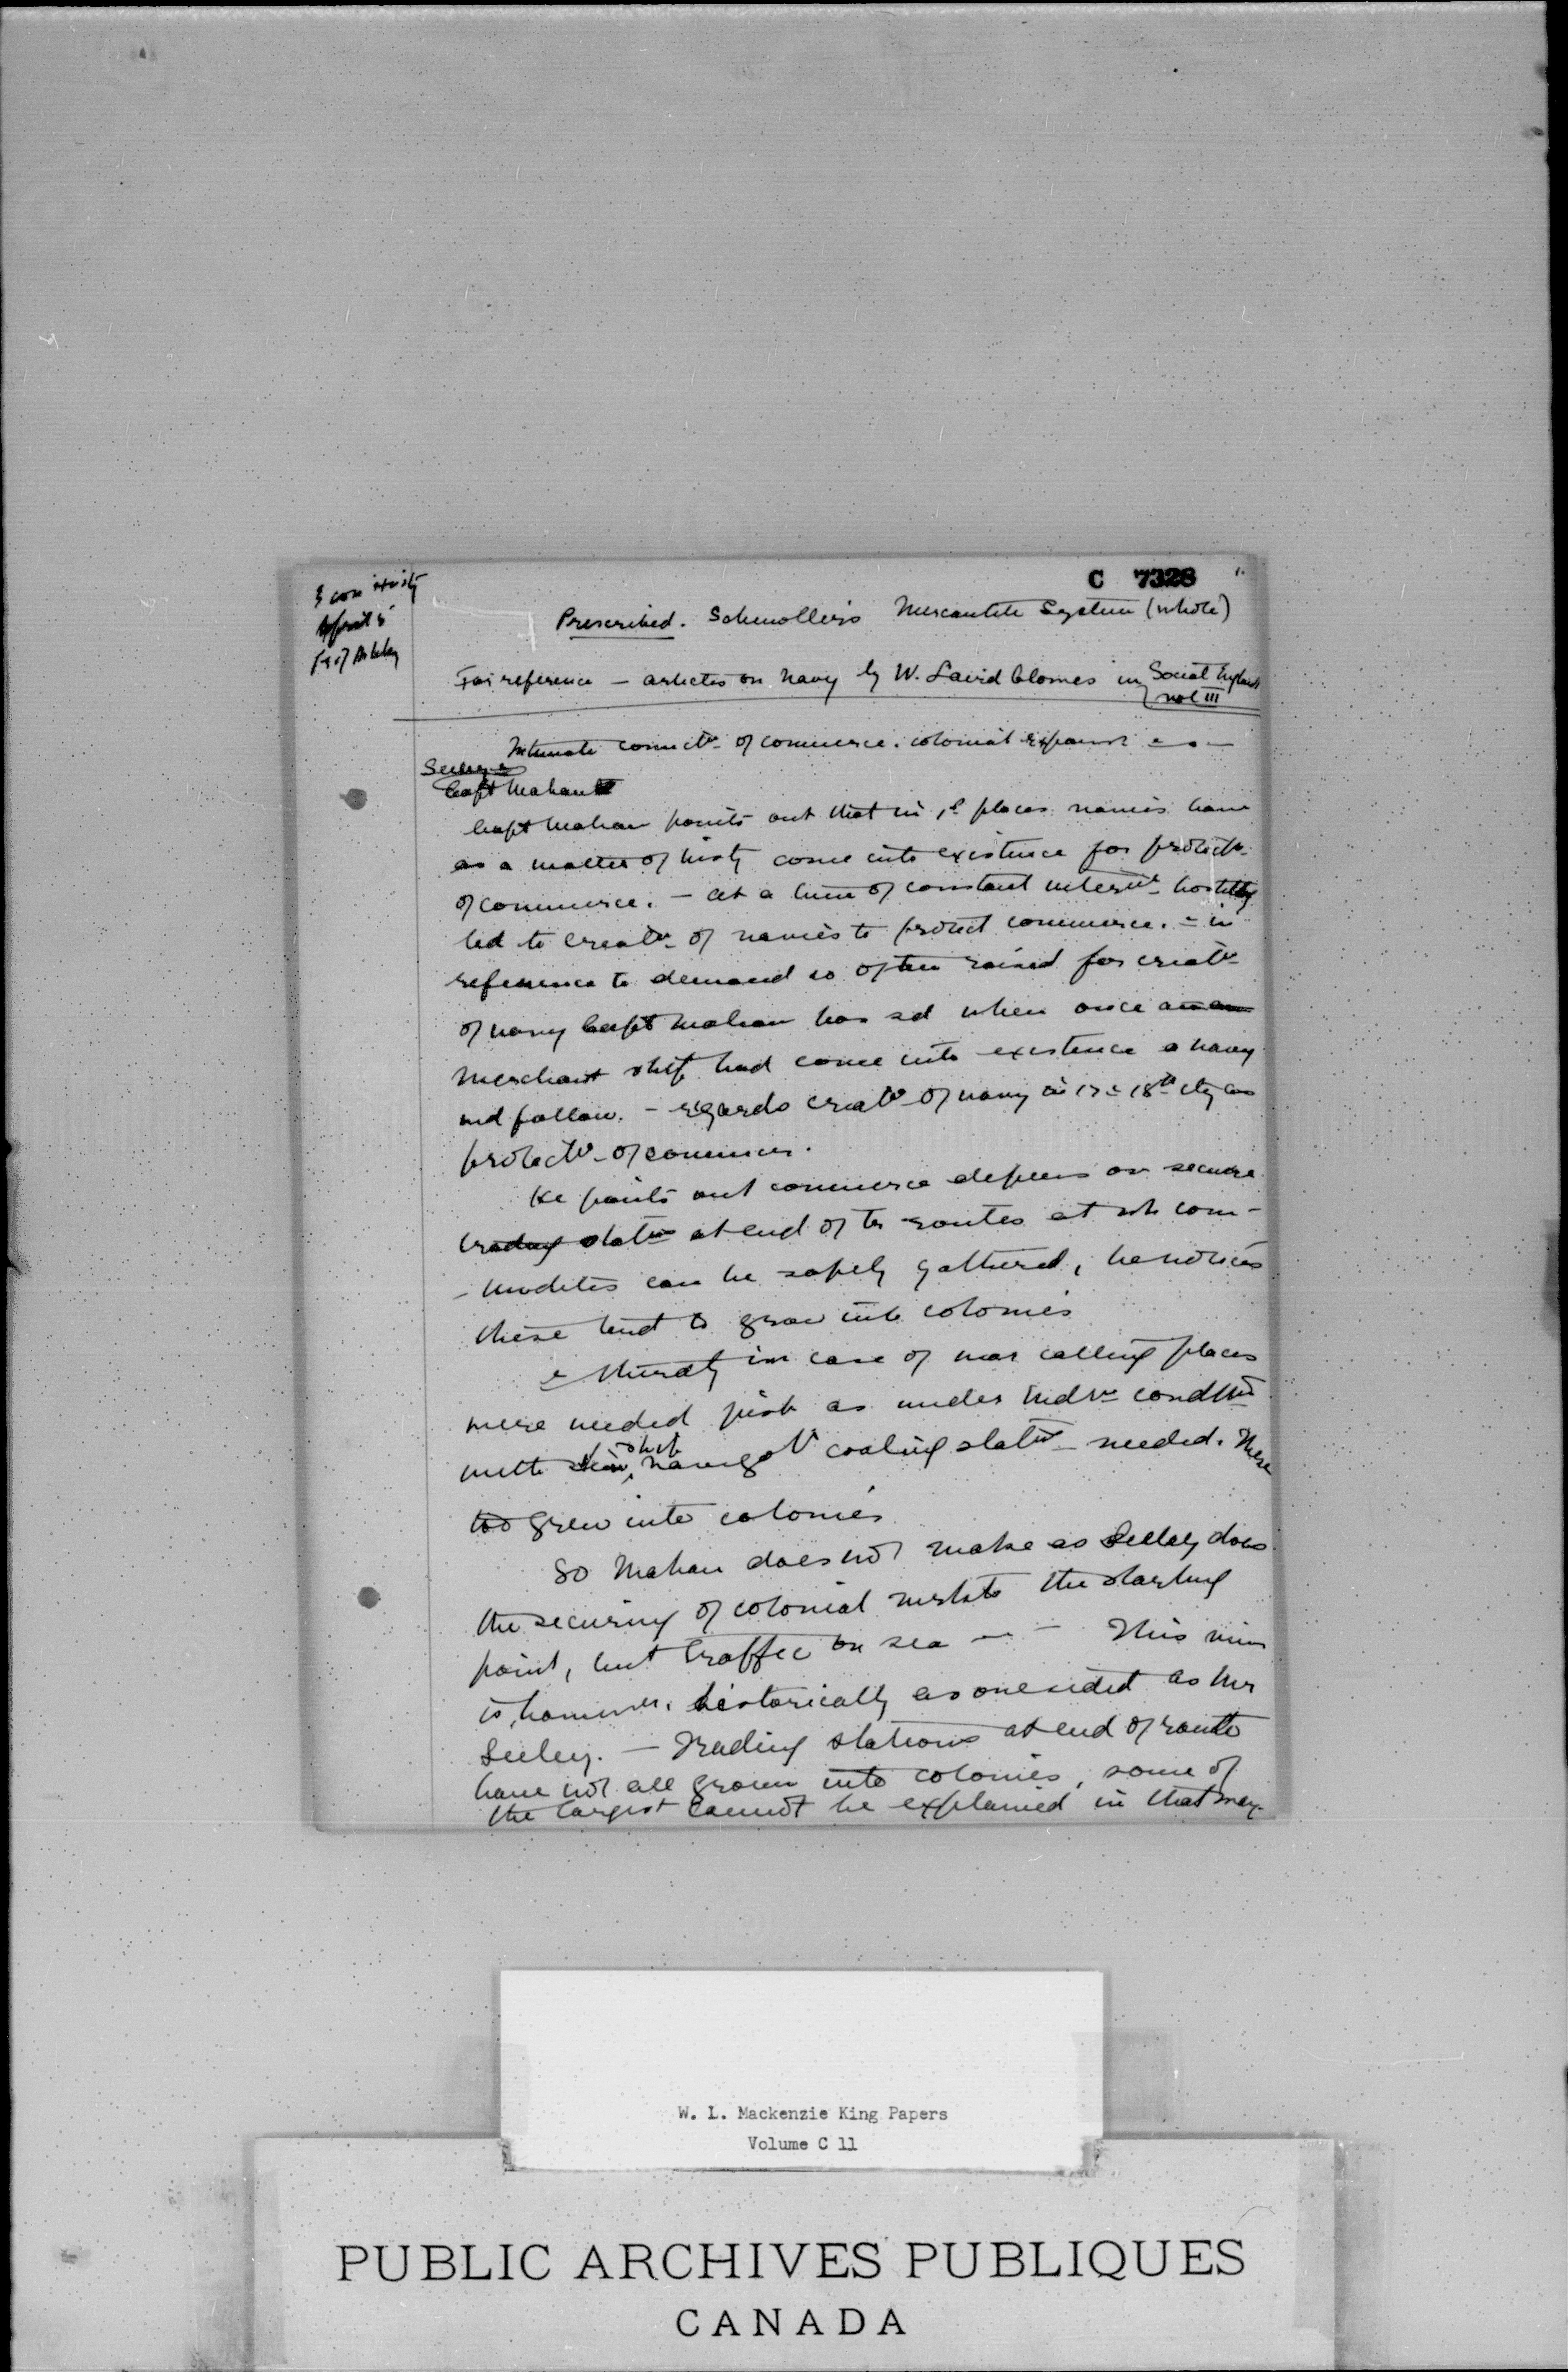 C 7328
Econ Histy
April 5
Prof Ashley
Prescribed. Schmoller's Mercantile System (whole)
For reference – articles on Navy by W. Laird Clowes in Social England
vol III
Intimate connectn of commerce. colonial expansn
Seeley &
Capt Mahan
Capt Mahan points out that in 1st places navies have
as a matter of histy come into existence for protectn
of commerce. – at a time of constant hostility
led to creatn of navies to protect commerce. – in
reference to demand so often raised for creatn
of navy Capt Mahan has sd when once
merchant ship had come into existence a navy
wd follow. – regards creatn of navy in 17 & 18th cty as
protectn of commerce.
He points out commerce depens on secure
trading statns at end of to routes at wh com-
- modites can be safely gathered, he notices
these tend to grow into colonies
& thirdly in case of war calling places
were needed just as under mdrn condtns
with steam ship navigatn coaling statns needed. These
too grew into colonies
So Mahan does not make as Seeley does
the securing of colonial markets the starting
point, but traffic on sea – – This view
is, however, historically as onesided as
Seeley. – Trading stations at end of route
have not all grown into colonies, some of
the largest cannot be explained in that way.
W. L. Mackenzie King Papers
Volume C 11
PUBLIC ARCHIVES PUBLIQUES
CANADA